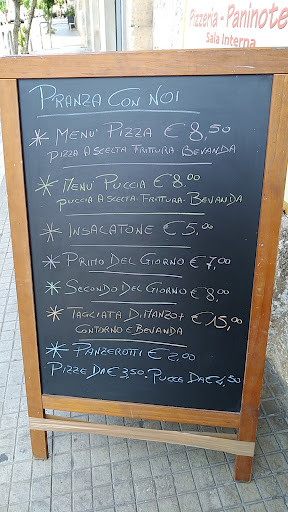 Pizzeria - Paninote
Sala Interna
PRANZA CON NOI
MENU' PIZZA € 8,50
PIZZA A SCELTA FRITTURA BEVANDA
MENU PUCCIA € 8,00
PUCCIA A SCELTA - FRITTURA - BEVANDA
INSALATONE € 5,00
PRIMO DEL GIORNO € 7,00
SECONDO DEL GIORNO € 8,00
TAGLIATA DI MANZO +
CONTORNO E BEVANDA € 15,00
PANZEROTTI € 2,00
PIZZE DA € 3,50. PUCCE DA € 4,50